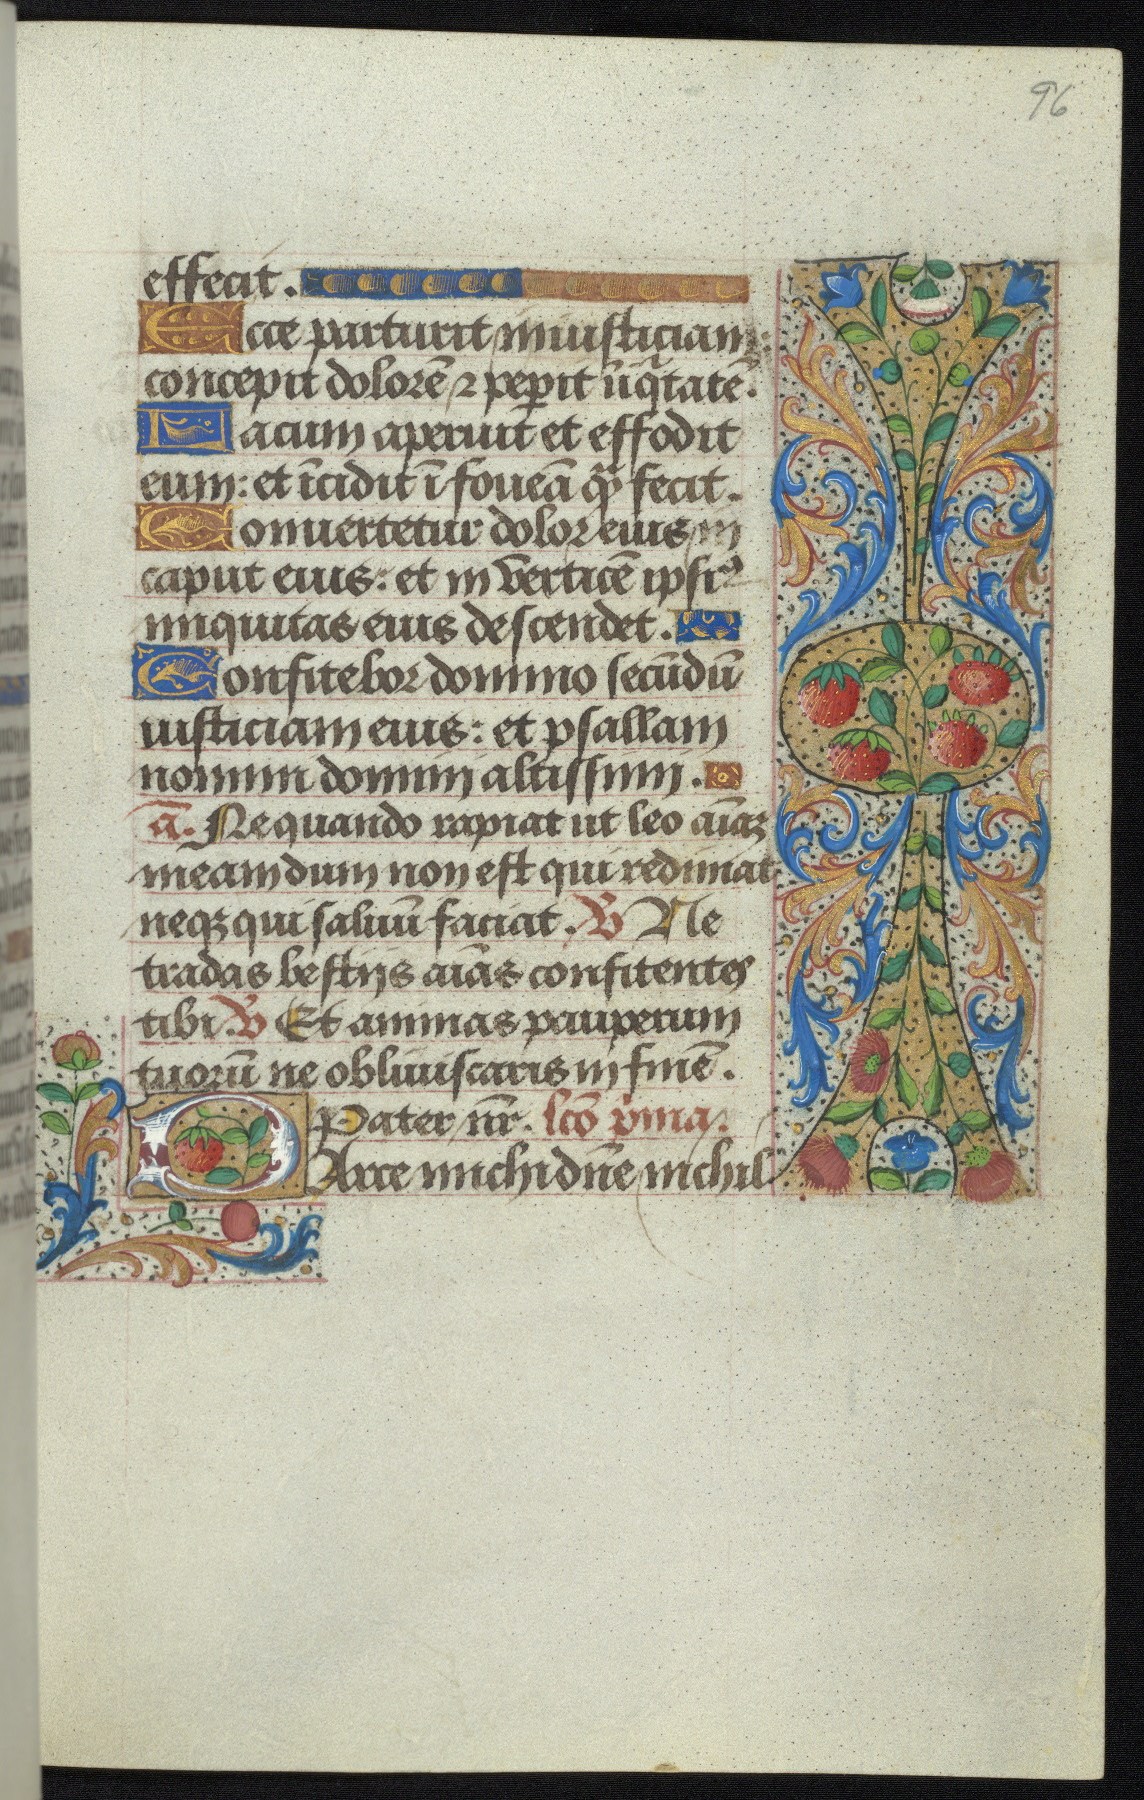 96
effecit.
Ecce parturit iniusticiam:
concepit dolorē ⁊ peperit iniq̄tatē.
Lacum aperuit et effodit
eum: et īcidit ī foueā quā fecit.
Conuertetur dolor eius in
caput eius: et in verticē ipsiꝰ
iniquitas eius descendet.
Confitebor domino secūdū
iusticiam eius: et psallam
nomini domini altissimi.
ā. Nequando rapiat ut leo aīaꝫ
meam dum non est qui redimat
neqꝫ qui saluū faciat. ℣ Ne
tradas bestijs aīas confitentes
tibi ℟ Et animas pauperum
tuorū ne obliuiscaris in finē.
Pater nr̄. lcō p̄ma.
PArce michi dn̄e nichil